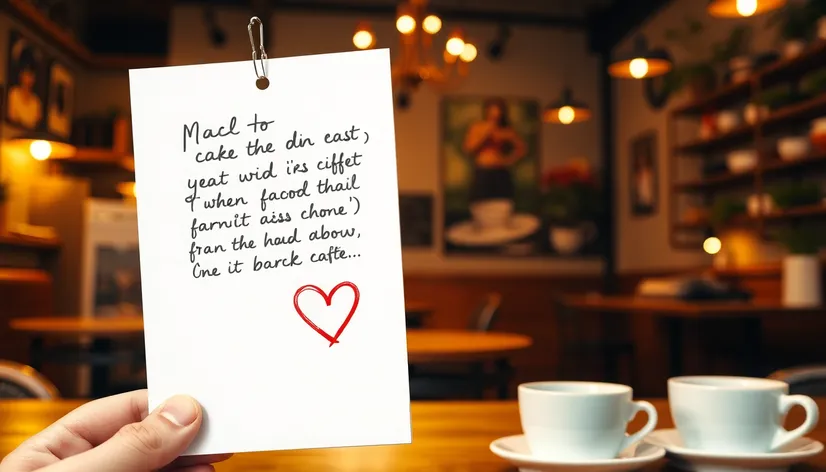 Macl to
cake the din east,
yeat wid i's ciffet
when facod thail
farnit aiss chone')
fran the haud abow,
Cne it barck caffe...